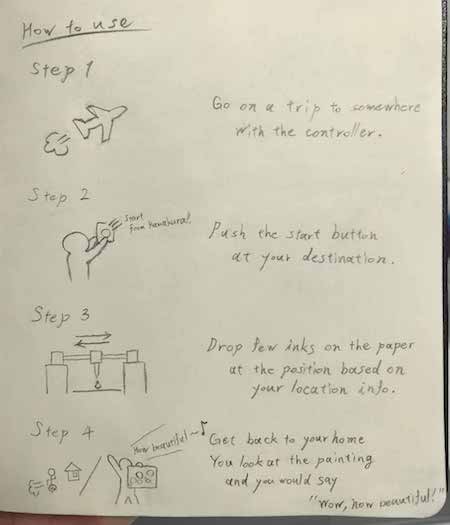 How to use
Step 1
Go on a trip to somewhere
with the controller.
Step 2
Start
from Kamakura!
Push the start button
at your destination.
Step 3
Drop few inks on the paper
at the position based on
your location info.
Step 4
How beautiful~♪
Get back to your home
You look at the painting
and you would say
"Wow, how beautiful!"